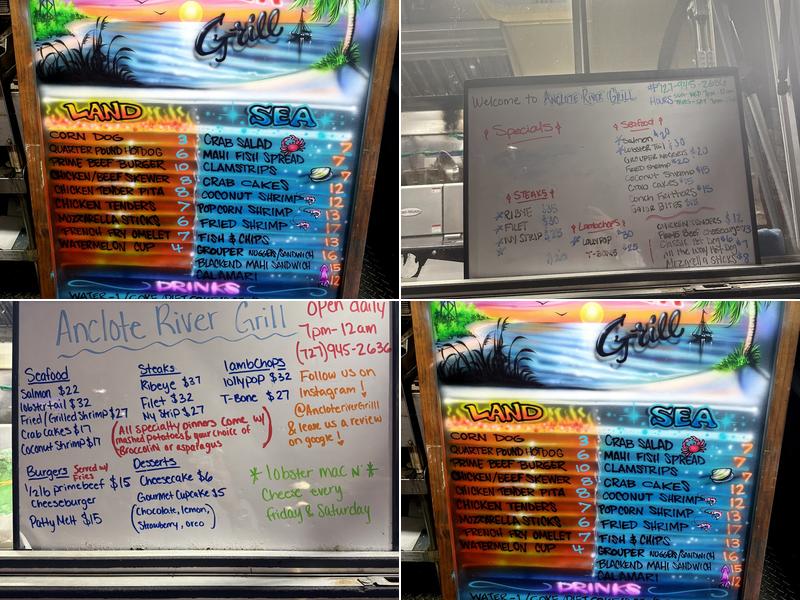 Grill
LAND
CORN DOG 3
QUARTER POUND HOTDOG 6
PRIME BEEF BURGER 10
CHICKEN/BEEF SKEWER 8
CHICKEN TENDER PITA 8
CHICKEN TENDERS 7
MOZZARELLA STICKS 6
FRENCH FRY OMELET 7
WATERMELON CUP 4
SEA
CRAB SALAD 7
MAHI FISH SPREAD 7
CLAMSTRIPS 7
CRAB CAKES 12
COCONUT SHRIMP 12
POPCORN SHRIMP 13
FRIED SHRIMP 17
FISH & CHIPS 13
GROUPER NUGGETS/SANDWICH 16
BLACKEND MAHI SANDWICH 15
CALAMARI 12
DRINKS
Welcome to ANCLOTE RIVER GRILL
727-945-2636
HOURS
Specials
STEAKS
RIBYE $35
FILET $30
NY STRIP $25
Lambchops
LOLLYPOP $30
T-BONE $25
Seafood
Salmon $20
LOBSTER TAIL $30
GROUPER NUGGETS $20
FRIED SHRIMP $20
COCONUT SHRIMP $15
CRAB CAKES $15
Conch Fritters $15
GATOR BITES
CHICKEN TENDERS $12
PRIME BEEF Cheeseburger $13
Classic Hot Dog $6
All the way Hot Dog $7
Mozzarella Sticks $8
Anclote River Grill
Open daily
7pm-12am
(727)945-2636
Seafood
Salmon $22
lobster tail $32
Fried/Grilled Shrimp $27
Crab cakes $17
Coconut Shrimp $17
Steaks
Ribeye $37
Filet $32
NY Strip $27
lambchops
lollypop $32
T-Bone $27
(All specialty dinners come w/
mashed potatoes & your choice of
Broccolini or asparagus)
Follow us on
Instagram!
@AncloteriverGrill
& leave us a review
on google!
Burgers Served w/ Fries
1/2lb prime beef $15
Cheeseburger
Patty Melt $15
Desserts
Cheesecake $6
Gourmet Cupcake $5
(Chocolate, lemon,
Strawberry, oreo)
* lobster mac N' *
Cheese every
Friday & Saturday
Grill
LAND
CORN DOG 3
QUARTER POUND HOTDOG 6
PRIME BEEF BURGER 10
CHICKEN/BEEF SKEWER 8
CHICKEN TENDER PITA 8
CHICKEN TENDERS 7
MOZZARELLA STICKS 6
FRENCH FRY OMELET 7
WATERMELON CUP 4
SEA
CRAB SALAD 7
MAHI FISH SPREAD 7
CLAMSTRIPS 7
CRAB CAKES 12
COCONUT SHRIMP 12
POPCORN SHRIMP 13
FRIED SHRIMP 17
FISH & CHIPS 13
GROUPER NUGGETS/SANDWICH 16
BLACKEND MAHI SANDWICH 15
CALAMARI 12
DRINKS